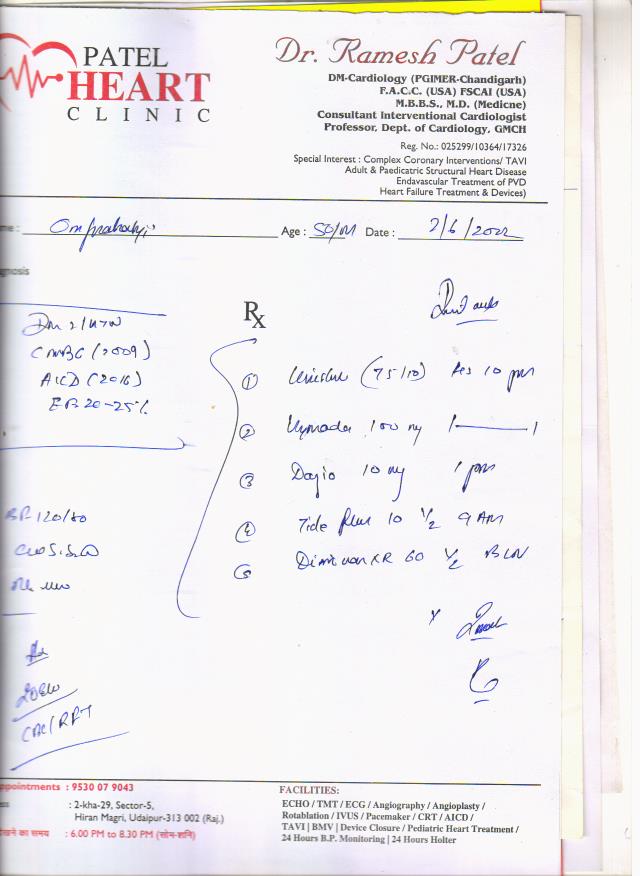 PATEL
HEART
CLINIC
Dr. Ramesh Patel
DM-Cardiology (PGIMER-Chandigarh)
F.A.C.C. (USA) FSCAI (USA)
M.B.B.S., M.D. (Medicne)
Consultant Interventional Cardiologist
Professor, Dept. of Cardiology, GMCH
Reg. No.: 025299/10364/17326
Special Interest : Complex Coronary Interventions/ TAVI
Adult & Paedicatric Structural Heart Disease
Endavascular Treatment of PVD
Heart Failure Treatment & Devices)
me : Omprakashji Age : 50/M Date : 2/6/2022
gnosis
Rx
DM 2/HTN
(2009)
AICD (2016)
20-25%
BP 120/80
CBC/RFT
① (75/10) 10 pm
② 100 mg 1 1
③ 10 mg 1 pm
④ Tide plus 10 1/2 9 AM
⑤ XR 60 1/2
ppointments : 9530 07 9043
ess : 2-kha-29, Sector-5,
Hiran Magri, Udaipur-313 002 (Raj.)
खने का समय : 6.00 PM to 8.30 PM (सोम-शनि)
FACILITIES:
ECHO / TMT / ECG / Angiography / Angioplasty /
Rotablation / IVUS / Pacemaker / CRT / AICD /
TAVI | BMV | Device Closure / Pediatric Heart Treatment /
24 Hours B.P. Monitoring | 24 Hours Holter